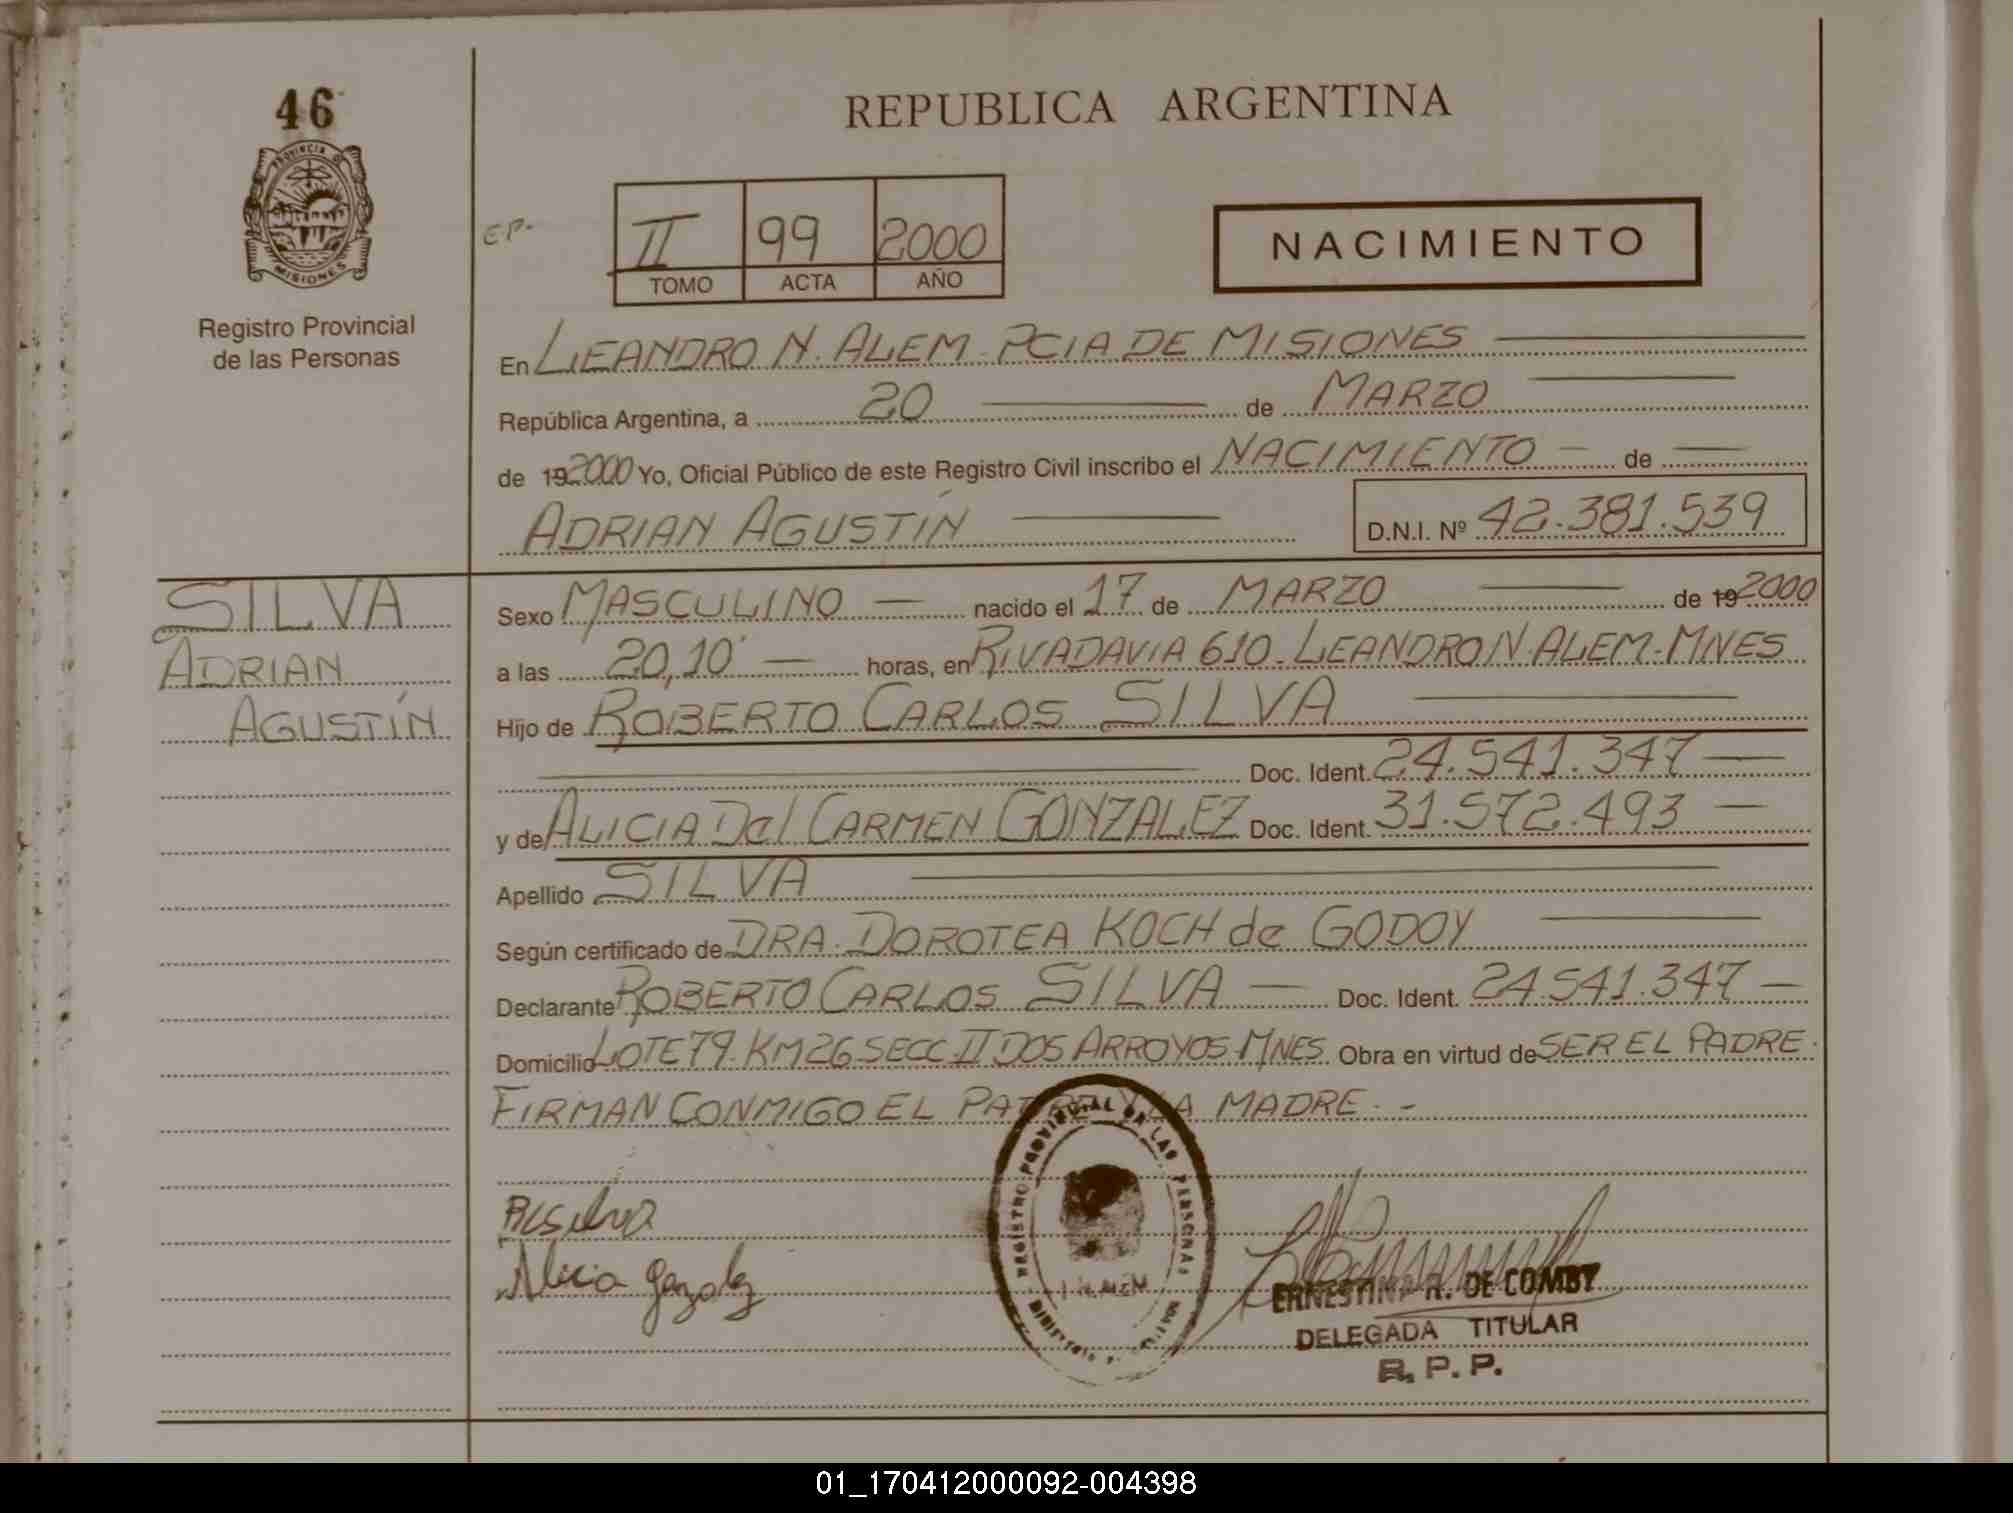 46
PROVINCIA DE
MISIONES
Registro Provincial
de las Personas
REPUBLICA ARGENTINA
E.P.-
II 99 2000
TOMO ACTA AÑO
NACIMIENTO
En LEANDRO N. ALEM - PCIA DE MISIONES
República Argentina, a 20 de MARZO
de 192000 Yo, Oficial Público de este Registro Civil inscribo el NACIMIENTO - de
ADRIAN AGUSTÍN
D.N.I. Nº 42.381.539
SILVA
ADRIAN
AGUSTÍN
Sexo MASCULINO — nacido el 17 de MARZO de 19 2000
a las 20,10' — horas, en RIVADAVIA 610 - LEANDRO N. ALEM - MNES
Hijo de ROBERTO CARLOS SILVA
Doc. Ident. 24.541.347 —
y de ALICIA Del CARMEN GONZALEZ Doc. Ident. 31.572.493 —
Apellido SILVA
Según certificado de DRA. DOROTEA KOCH de GODOY
Declarante ROBERTO CARLOS SILVA — Doc. Ident. 24.541.347 —
Domicilio LOTE 79 - KM 26 SECC II DOS ARROYOS - MNES Obra en virtud de SER EL PADRE.
FIRMAN CONMIGO EL PADRE Y LA MADRE. -
RCSilva
Alicia Gonzalez
REGISTRO PROVINCIAL DE LAS PERSONAS
L. N. ALEM
ERNESTINA R. DE COMBY
DELEGADA TITULAR
R. P. P.
01_170412000092-004398